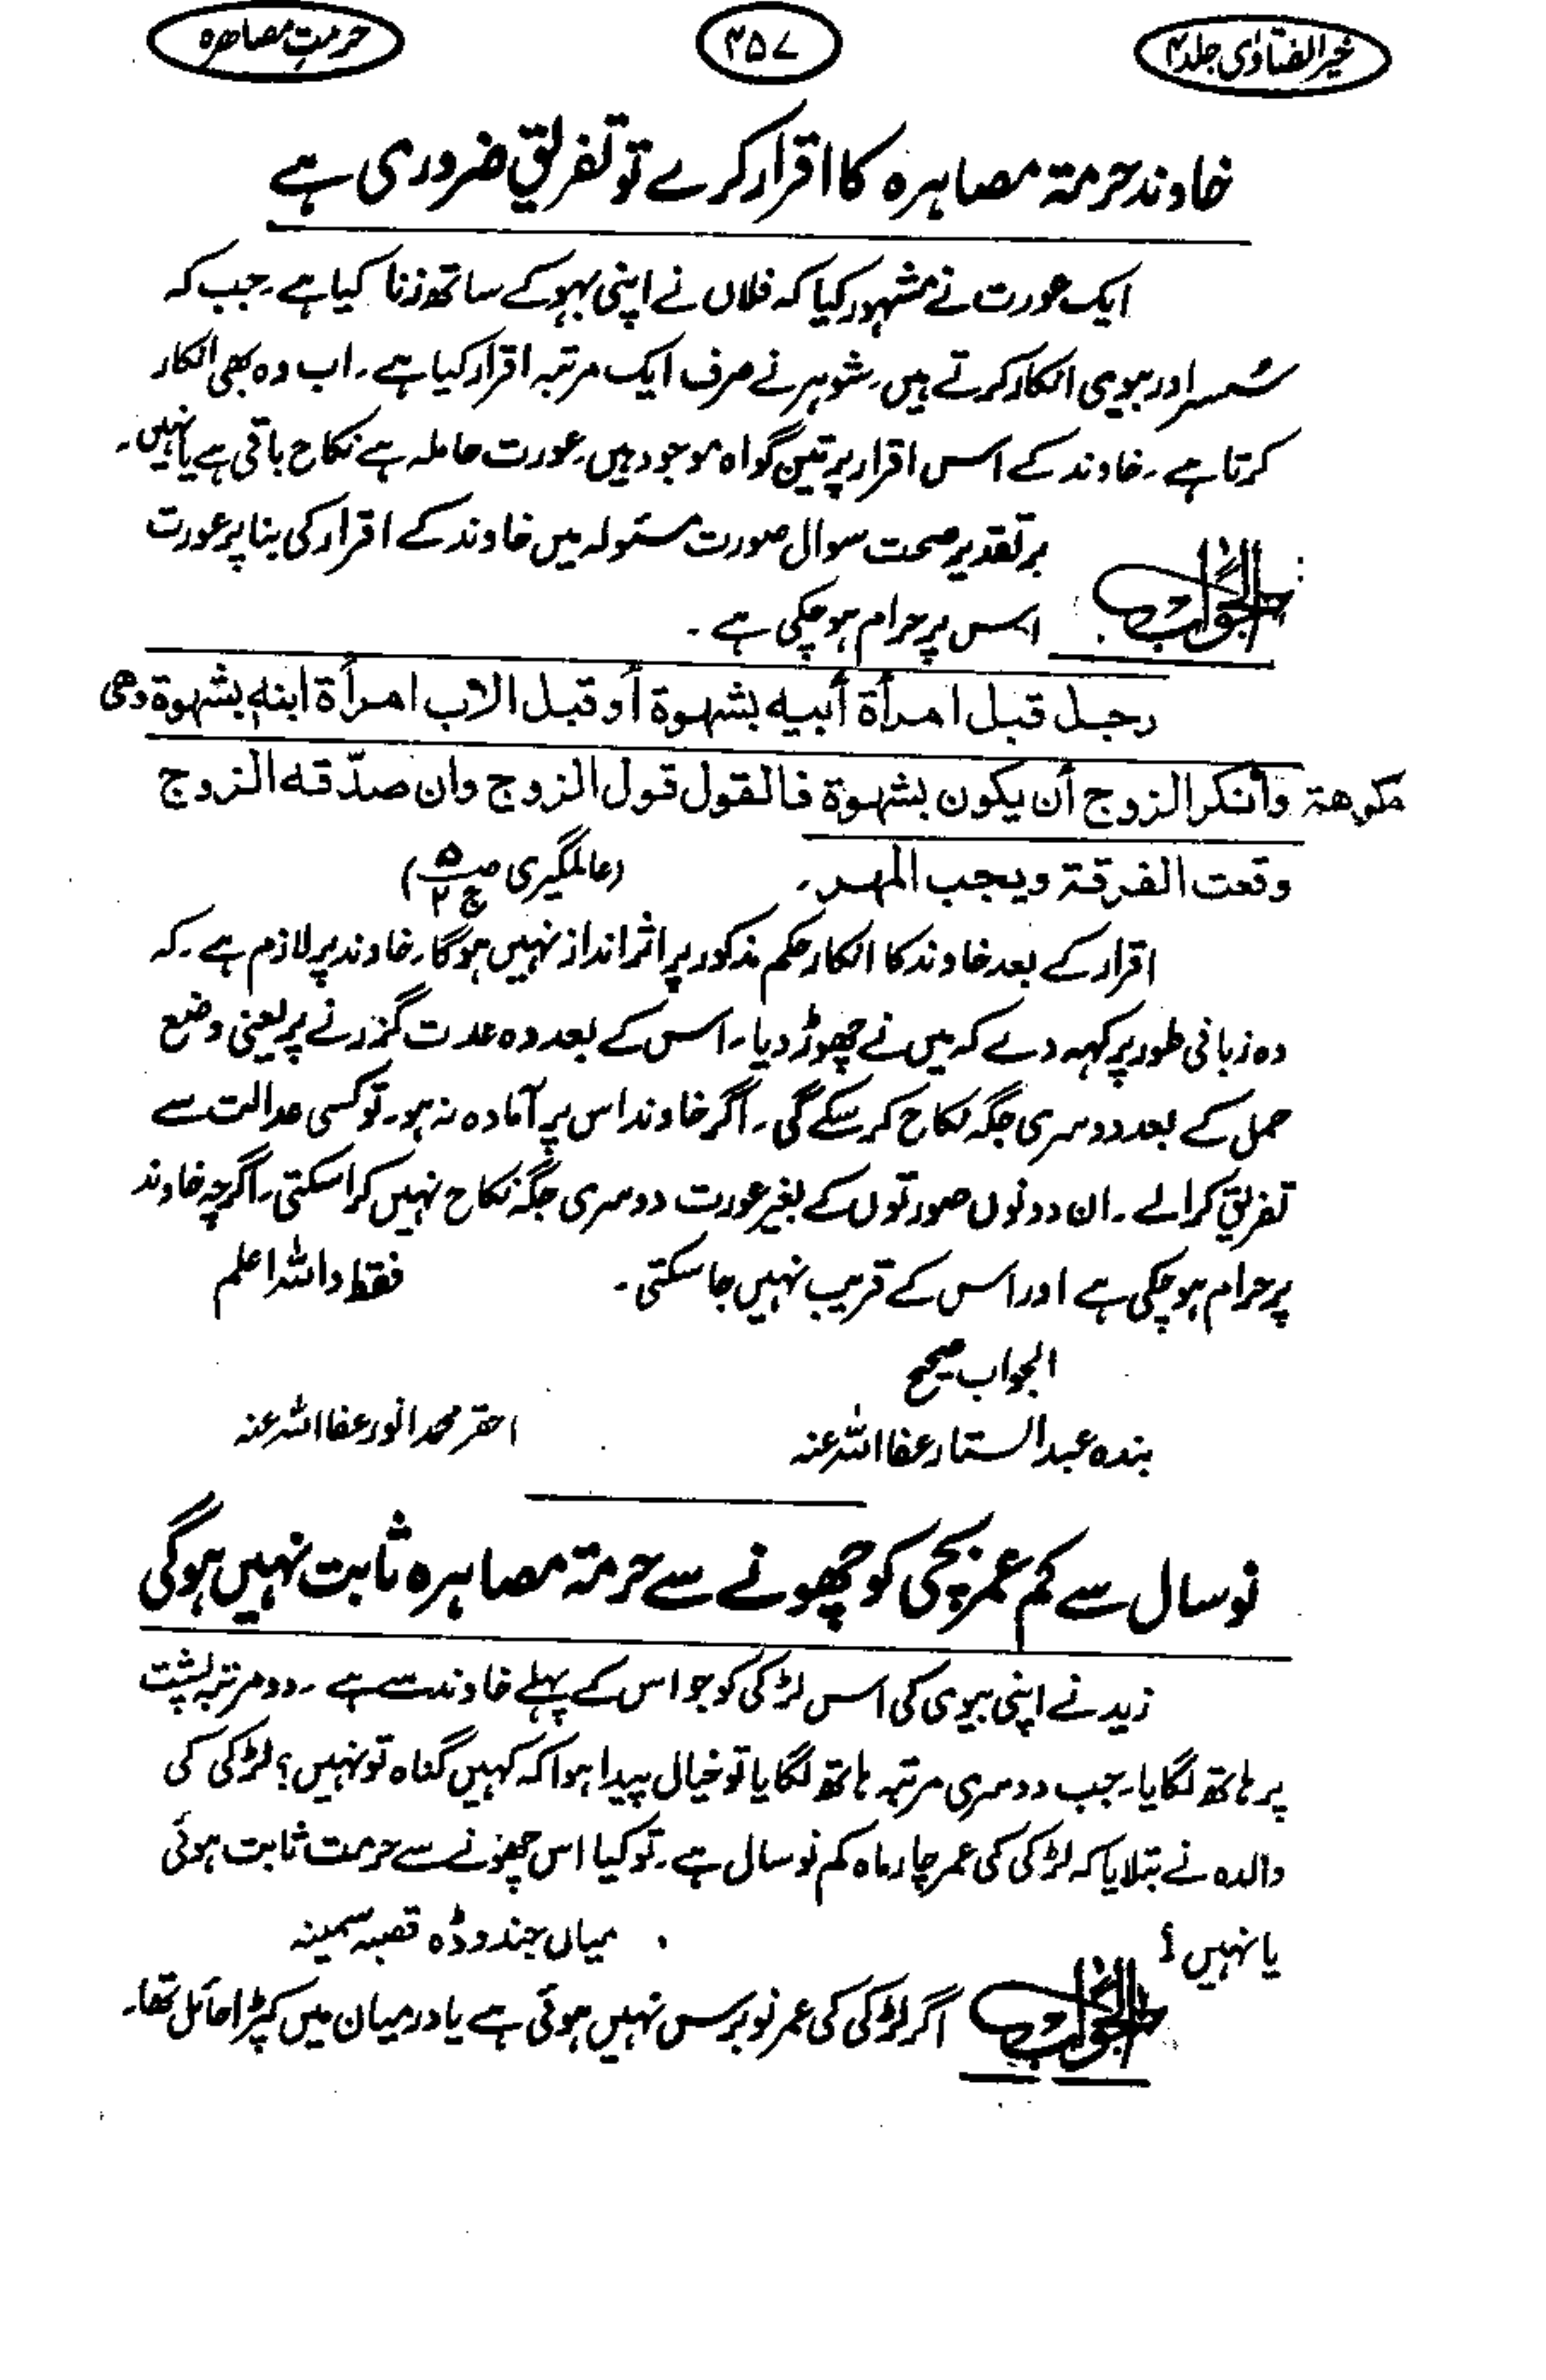 خیر الفتاوٰی جلد ۴
۴۵۷
حرمتِ مصاھرہ
خاوند حرمۃ مصاہرہ کا اقرار کرے تو تفریق ضروری ہے
ایک عورت نے مشہور کیا کہ فلاں نے اپنی بہو کے ساتھ زنا کیا ہے۔ جب کہ
سُسر اور بیوی انکار کرتے ہیں۔ شوہر نے صرف ایک مرتبہ اقرار کیا ہے۔ اب وہ بھی انکار
کرتا ہے۔ خاوند کے اس اقرار پر تین گواہ موجود ہیں۔ عورت حاملہ ہے نکاح باقی ہے یا نہیں۔
الجواب بر تقدیر صحت سوال صورت مسئولہ میں خاوند کے اقرار کی بنا پر عورت
اس پر حرام ہو چکی ہے۔
رجل قبل امرأة أبیہ بشہوة أو قبل الاب امرأة ابنہ بشہوة وھی
مکرھة وأنکر الزوج أن یکون بشہوة فالقول قول الزوج وان صدّقہ الزوج
وقعت الفرقة ویجب المہر۔ (عالمگیری ص۵ ج۲)
اقرار کے بعد خاوند کا انکار حکم مذکور پر اثر انداز نہیں ہوگا۔ خاوند پر لازم ہے۔ کہ
وہ زبانی طور پر کہہ دے کہ میں نے چھوڑ دیا۔ اس کے بعد وہ عدت گزرنے پر یعنی وضع
حمل کے بعد دوسری جگہ نکاح کر سکے گی۔ اگر خاوند اس پر آمادہ نہ ہو۔ تو کسی عدالت سے
تفریق کرالے۔ ان دونوں صورتوں کے بغیر عورت دوسری جگہ نکاح نہیں کرا سکتی۔ اگرچہ خاوند
پر حرام ہو چکی ہے اور اس کے قریب نہیں جا سکتی۔ فقط واللہ اعلم
الجواب صحیح
بندہ عبدالستار عفا اللہ عنہ احقر محمد انور عفا اللہ عنہ
نو سال سے کم عمر بچی کو چھونے سے حرمۃ مصاہرہ ثابت نہیں ہوگی
زید نے اپنی بیوی کی اس لڑکی کو جو اس کے پہلے خاوند سے ہے۔ دو مرتبہ پشت
پر ہاتھ لگایا۔ جب دوسری مرتبہ ہاتھ لگایا تو خیال پیدا ہوا کہ کہیں گناہ تو نہیں؟ لڑکی کی
والدہ نے بتلایا کہ لڑکی کی عمر چار ماہ کم نو سال ہے۔ تو کیا اس چھونے سے حرمت ثابت ہوئی
یا نہیں؟ میاں جندوڈہ قصبہ سمینہ
الجواب اگر لڑکی کی عمر نو برس نہیں ہوئی ہے یا درمیان میں کپڑا حائل تھا۔